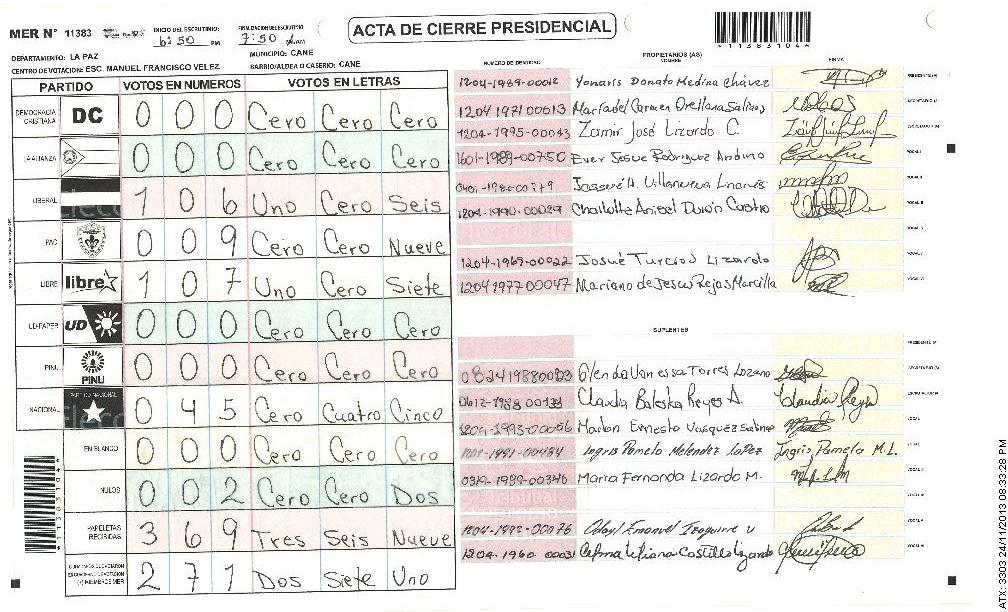 MER N° 11383
INICIO DEL ESCRUTINIO: 6:50 PM
FINALIZACION DEL ESCRUTINIO 7:50
ACTA DE CIERRE PRESIDENCIAL
1138331044
DEPARTAMENTO: LA PAZ
MUNICIPIO: CANE
CENTRO DE VOTACION: ESC. MANUEL FRANCISCO VELEZ
BARRIO/ALDEA O CASERIO: CANE
PARTIDO VOTOS EN NUMEROS VOTOS EN LETRAS
DEMOCRACIA CRISTIANA DC 0 0 0 Cero Cero Cero
LA ALIANZA 0 0 0 Cero Cero Cero
LIBERAL 1 0 6 Uno Cero Seis
PAC 0 0 9 Cero Cero Nueve
LIBRE libre 1 0 7 Uno Cero Siete
UD-FAPER UD 0 0 0 Cero Cero Cero
PINU PINU 0 0 0 Cero Cero Cero
NACIONAL PARTIDO NACIONAL 0 4 5 Cero Cuatro Cinco
EN BLANCO 0 0 0 Cero Cero Cero
NULOS 0 0 2 Cero Cero Dos
PAPELETAS RECIBIDAS 3 6 9 Tres Seis Nueve
2 7 1 Dos Siete Uno
PROPIETARIOS (AS)
NUMERO DE IDENTIDAD NOMBRE FIRMA
1204-1989-00012 Yonaris Donato Medina Chávez
1204 1971 00013 Maria del Carmen Orellana Salinas
1204-1995-00043 Zamir José Lizardo C.
1601-1989-00750 Ever Josue Rodriguez Andino
Jossué A. Villanueva Linares
1204-1990-00029 Charlotte Anisel Durón Castro
1204-1969-00022 Josué Turcios Lizardo
1204 1977 00047 Mariano de Jesus Rojas Marcilla
SUPLENTES
Glenda Vanessa Torres Lozano
Claudia Baleska Reyes A.
1204-1993-00056 Marlon Ernesto Vasquez Salinas
Ingris Pamela Melendez Lopez Ingris Pamela M.L.
0319-1989-00346 Maria Fernanda Lizardo M.
1204-1992-00076 Emanuel Izaguirre
1204-1960 Castillo Lizardo
ATX: 3303 24/11/2013 08:33:28 PM